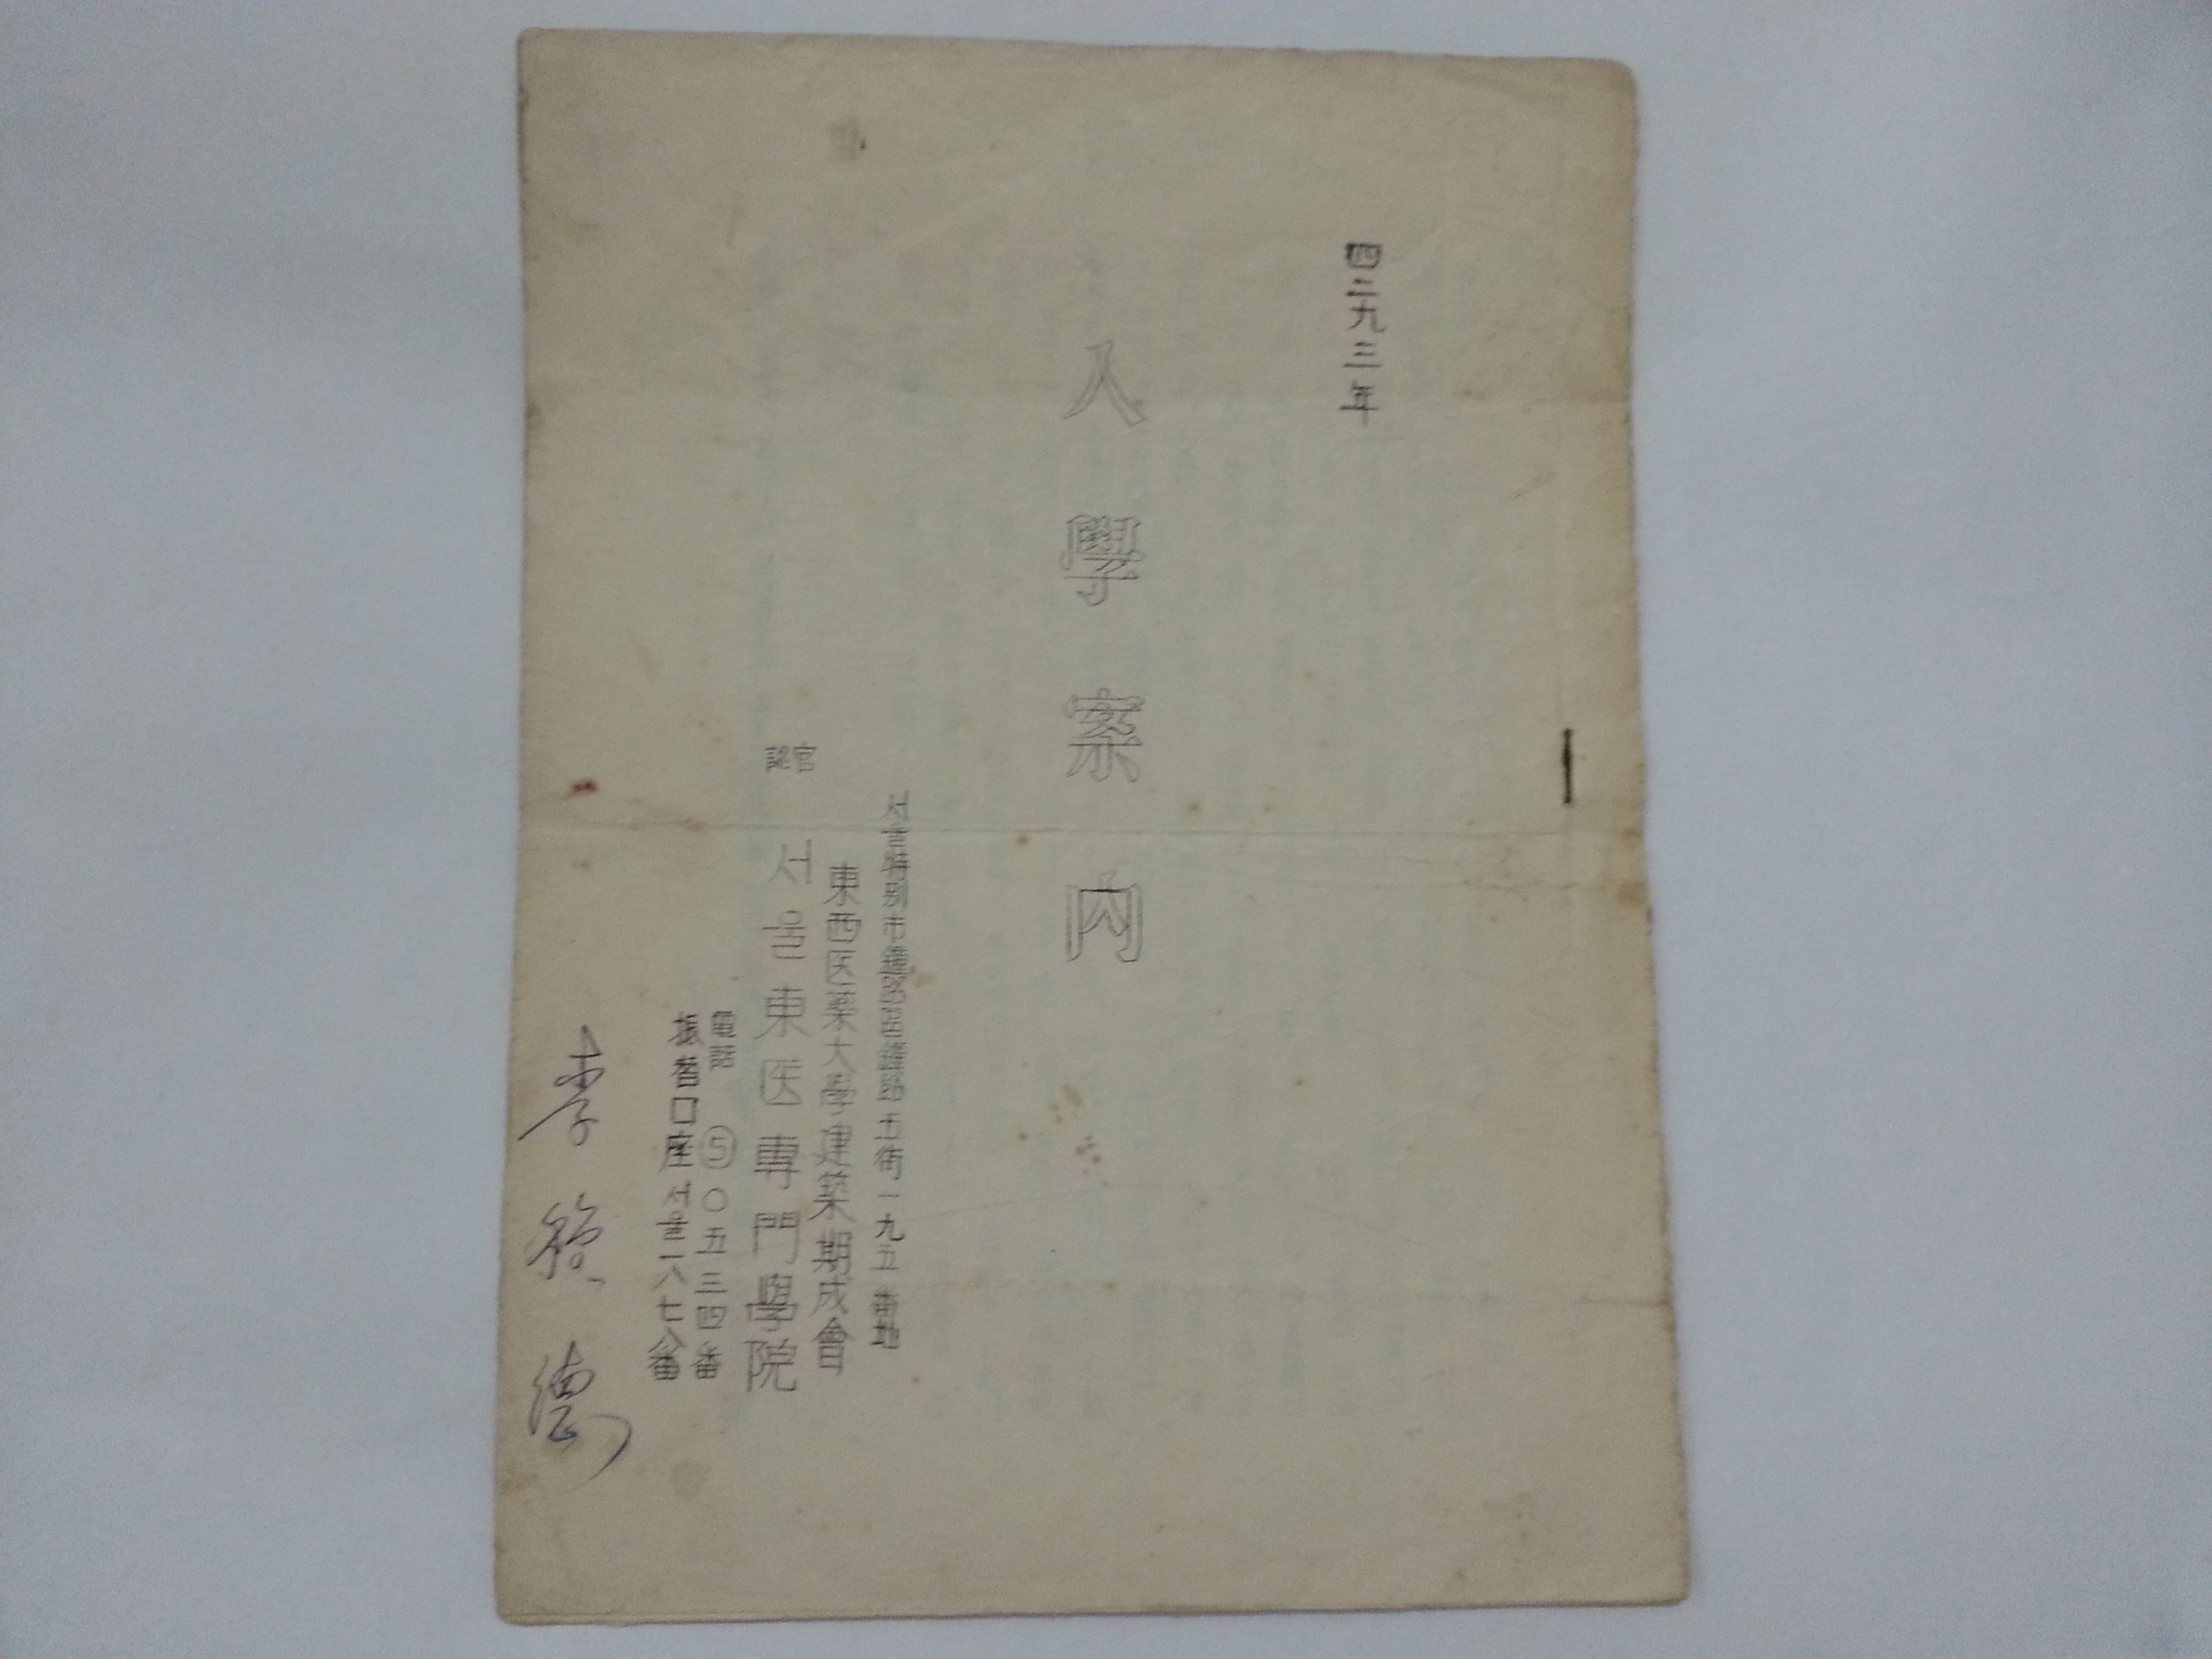 四二九三年
入學案內
서울特別市鍾路區鍾路五街一九五番地
東西医藥大學建築期成會
官認 서울東医專門學院
電話 ⑤〇五三四番
振替口座 서울一八七八番
李 德